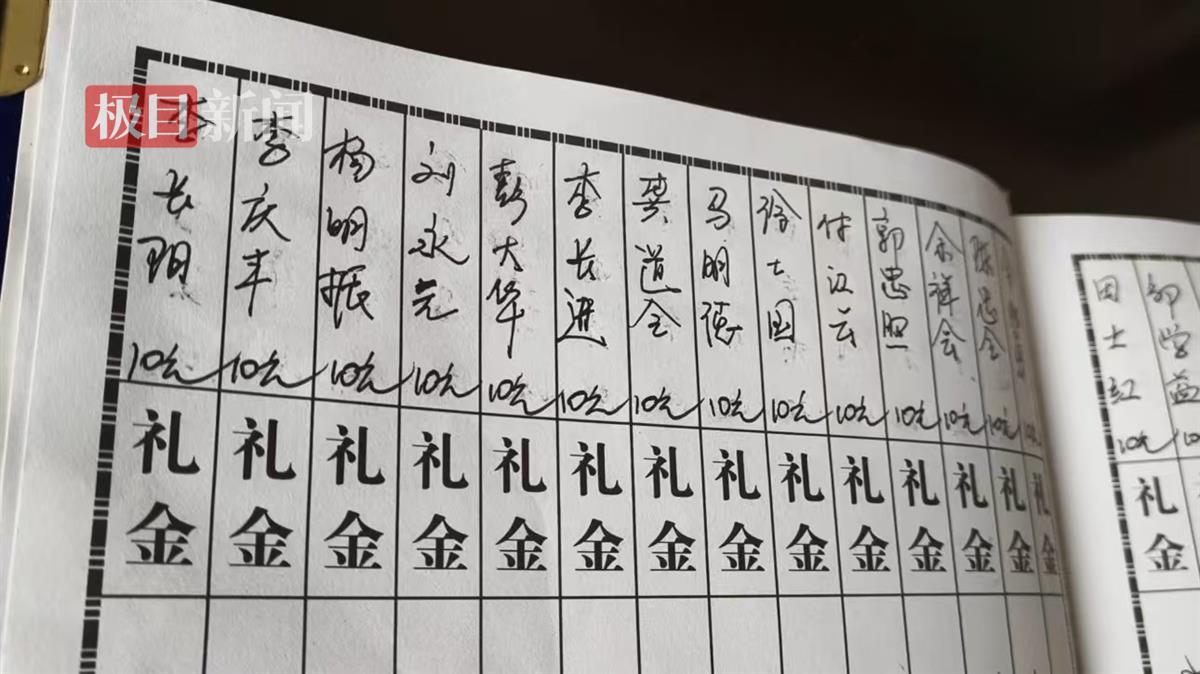 极目新闻
李长 10元
李庆丰 10元
杨明振 10元
刘永元 10元
彭大华 10元
李长进 10元
龚道全 10元
马明德 10元
徐士国 10元
付汉云 10元
郭忠照 10元
余祥会 10元
陈忠全 10元
礼金 礼金 礼金 礼金 礼金 礼金 礼金 礼金 礼金 礼金 礼金 礼金 礼金 礼金
田士红 10元
学益 10
礼金